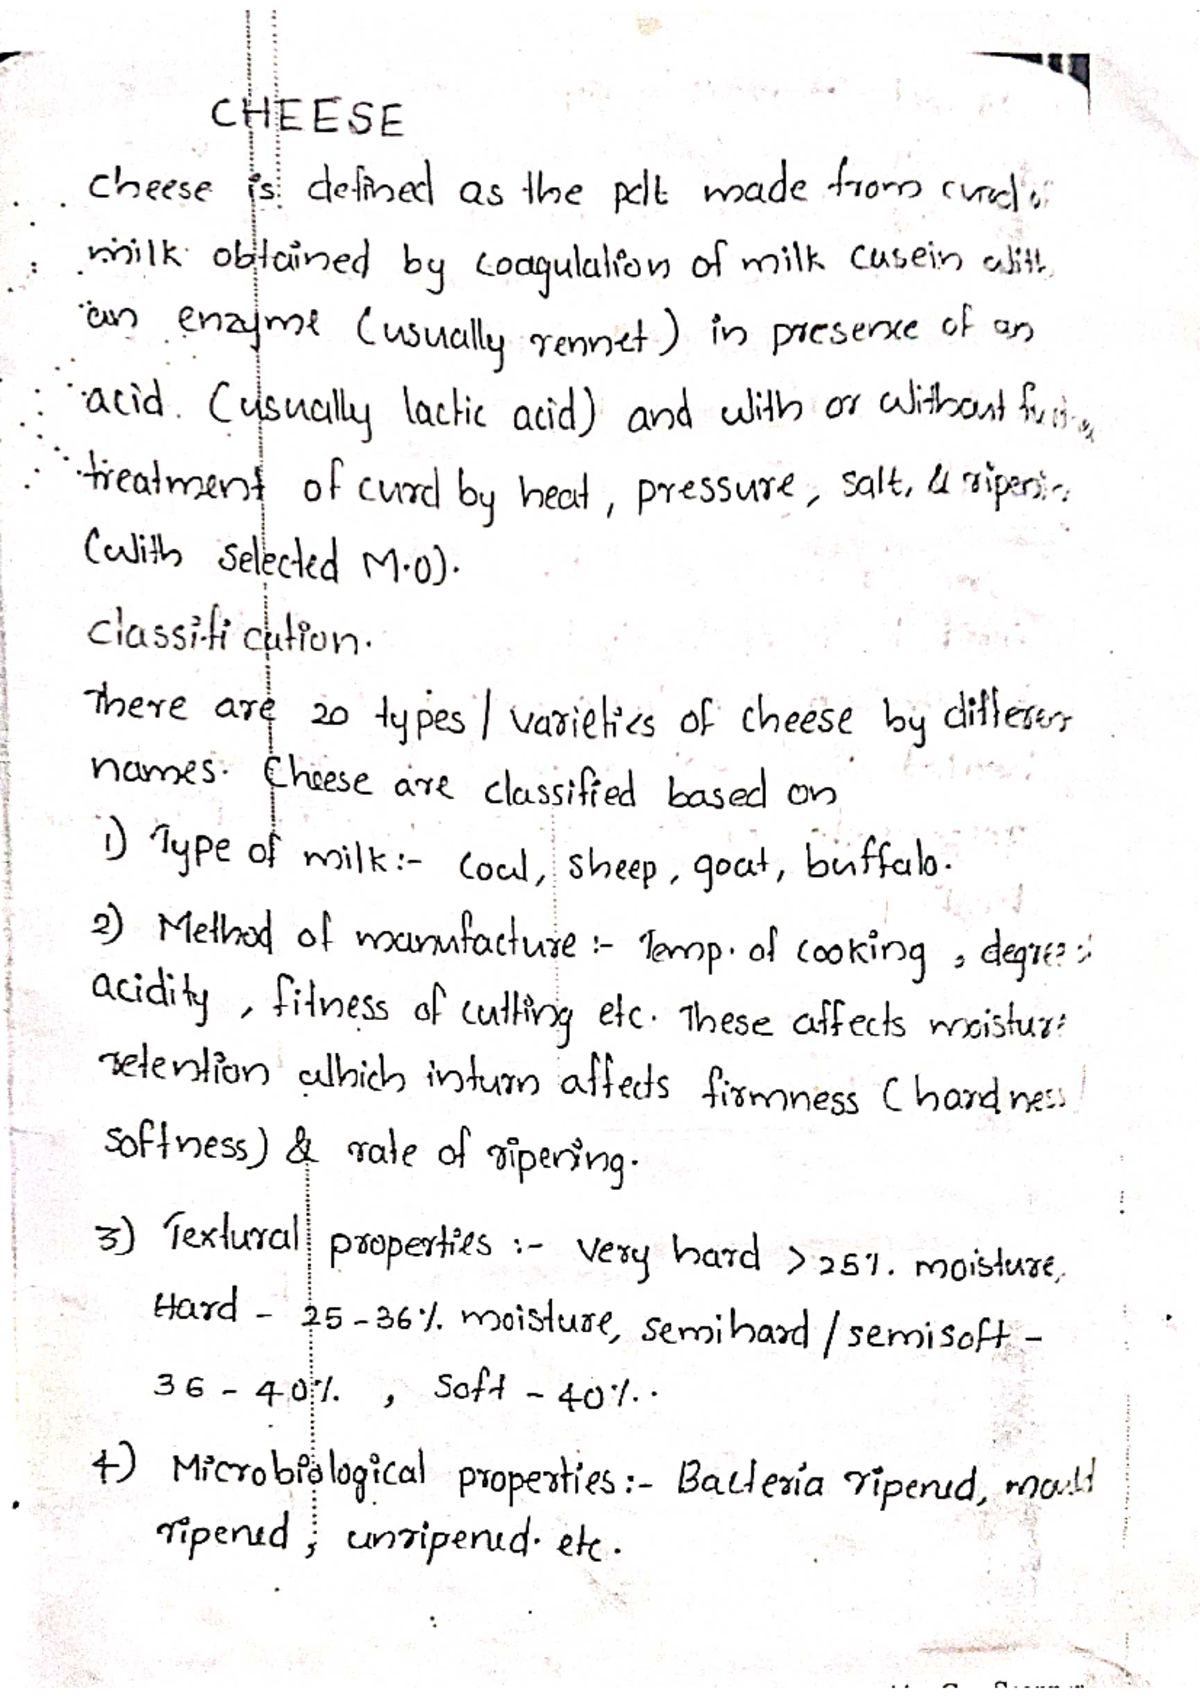 CHEESE
cheese is defined as the pdt made from curd of
milk obtained by coagulation of milk casein with
an enzyme (usually rennet) in presence of an
acid. (usually lactic acid) and with or without
treatment of curd by heat, pressure, salt, & ripening
(with selected M.O).
classification.
There are 20 types / varieties of cheese by different
names. Cheese are classified based on
1) Type of milk:- cow, sheep, goat, buffalo.
2) Method of manufacture :- Temp. of cooking, degree of
acidity, fitness of cutting etc. These affects moisture
retention which inturn affects firmness (hardness
softness) & rate of ripening.
3) Textural properties :- Very hard > 25%. moisture,
Hard - 25-36%. moisture, semihard / semisoft -
36 - 40%. , Soft - 40%..
4) Microbiological properties:- Bacteria ripened, mould
ripened, unripened. etc.